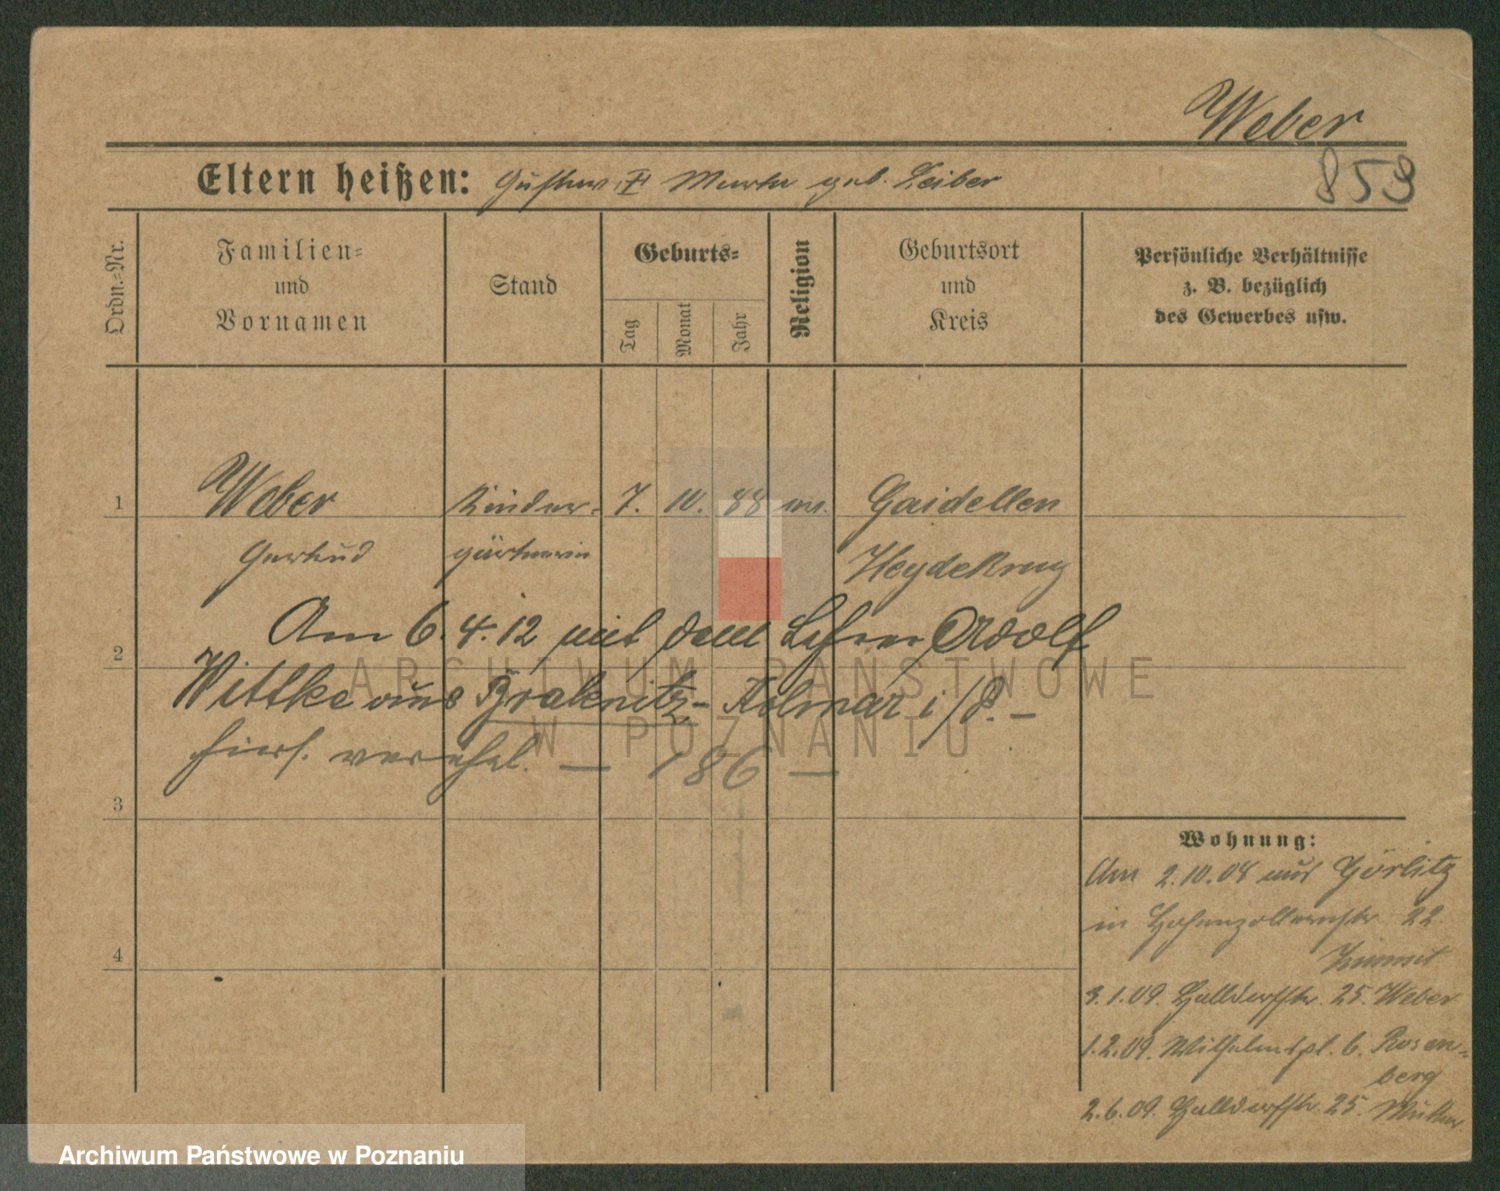 Weber
Eltern heißen: Gustav, F Marta geb. Zeiber
853
Ordn.-Nr.
Familien-
und
Vornamen
Stand
Geburts-
Tag
Monat
Jahr
Religion
Geburtsort
und
Kreis
Persönliche Verhältnisse
z. B. bezüglich
des Gewerbes usw.
1
Weber
Kinder-
7. 10. 88 ev.
Gaidellen
Gertrud
gärtnerin
Heydekrug
Am 6. 4. 12 mit dem Lehrer Adolf
2
Wittke aus Kolmar i/P. –
hiers. verehel. — 186 —
3
4
Wohnung:
Am 2.10.08 aus Görlitz
in Hohenzollernstr. 22
3.1.09. Halldorfstr. 25. Weber
1.2.09. Wilhelmspl. 6. Rosen-
berg
2.6.09. Halldorfstr. 25. Müller
ARCHIWUM PAŃSTWOWE
W POZNANIU
Archiwum Państwowe w Poznaniu